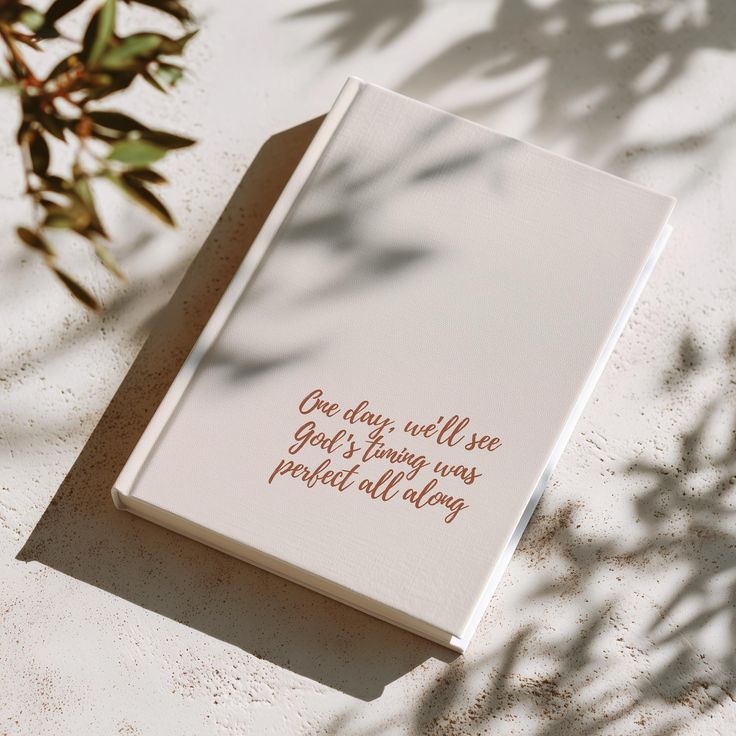 One day, we'll see
God's timing was
perfect all along